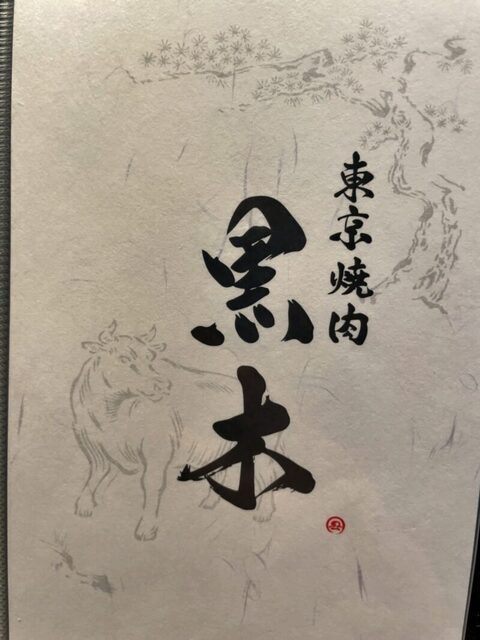 東京焼肉
黒木